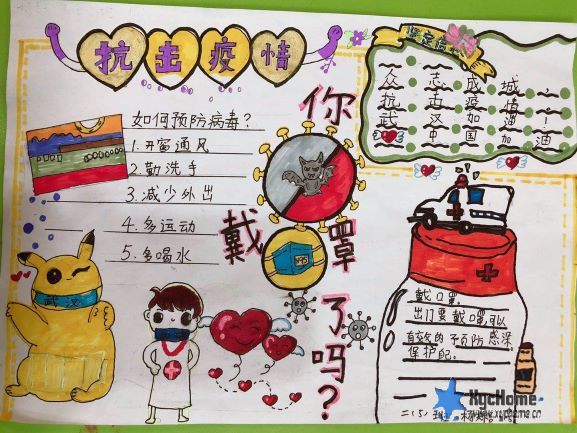 抗击疫情
如何预防病毒?
1.开窗通风
2.勤洗手
3.减少外出
4.多运动
5.多喝水
你戴罩了吗?
N95
武汉
坚定信
众志成城
抗击疫情!
武汉加油!
中国加油
戴口罩,
出门要戴口罩,可以
有效的予页防感染
保护
二(5)班
XycHome
www.xychome.cn